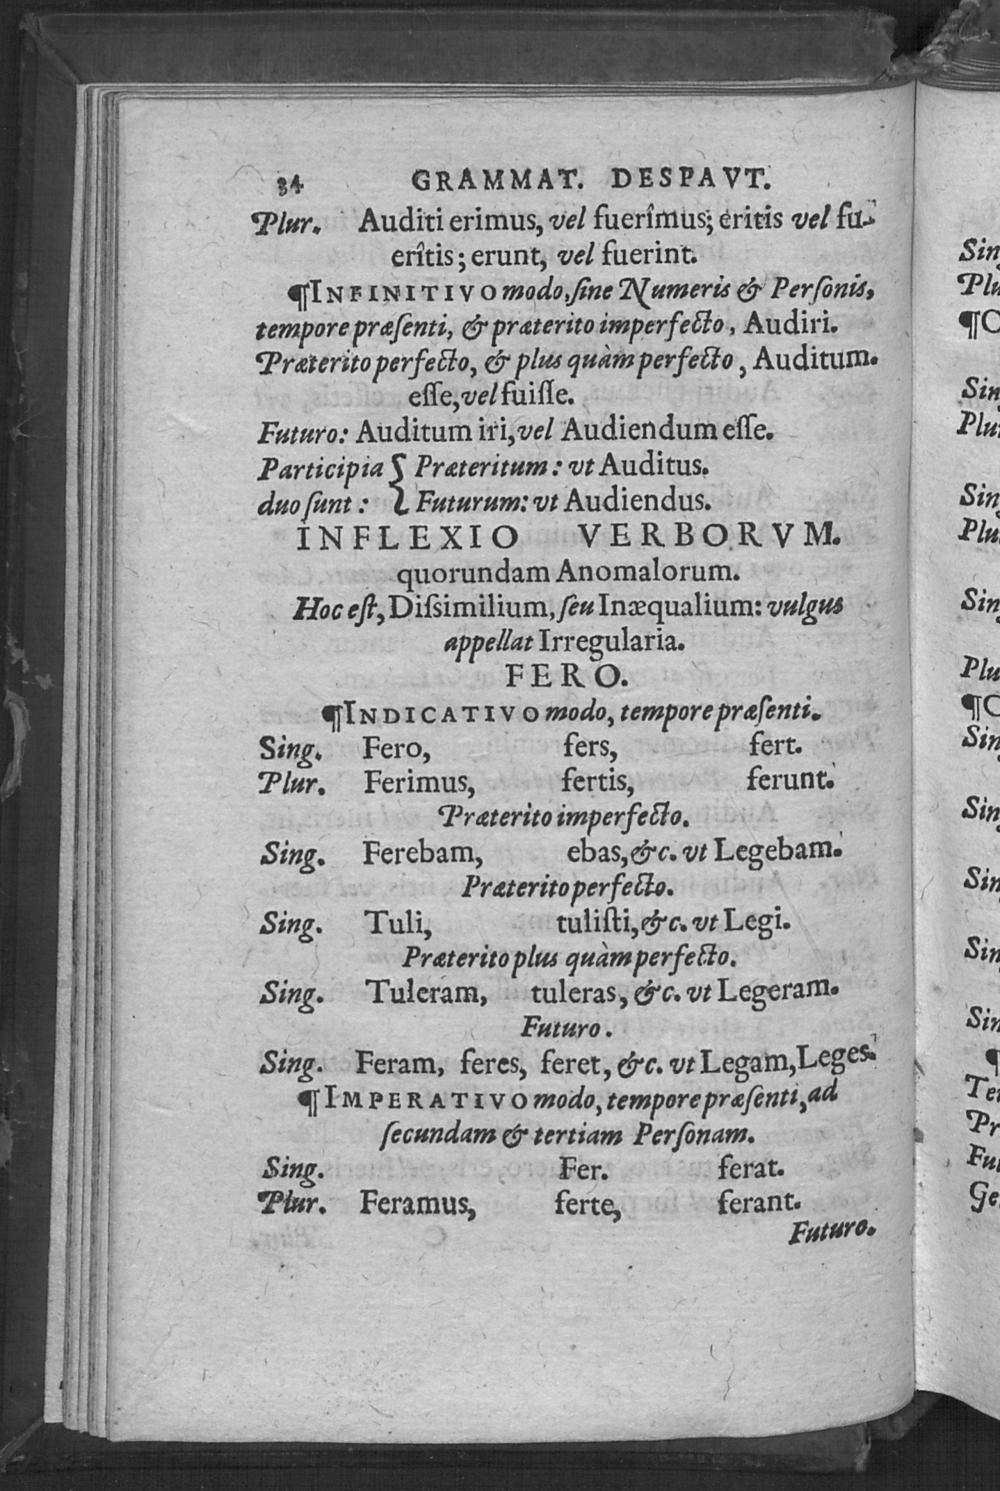 34 GRAMMAT. DESPAVT.
Plur. Auditi erimus, vel fuerîmus; eritis vel fu-
erîtis; erunt, vel fuerint.
¶INFINITIVO modo, ſine Numeris & Perſonis,
tempore præſenti, & præterito imperfecto, Audiri.
Præterito perfecto, & plus quàm perfecto, Auditum.
eſſe, vel fuiſſe.
Futuro: Auditum iri, vel Audiendum eſſe.
Participia { Præteritum: vt Auditus.
duo ſunt: { Futurum: vt Audiendus.
INFLEXIO VERBORVM.
quorundam Anomalorum.
Hoc eſt, Diſsimilium, ſeu Inæqualium: vulgus
appellat Irregularia.
FERO.
¶INDICATIVO modo, tempore præſenti.
Sing. Fero, fers, fert.
Plur. Ferimus, fertis, ferunt.
Præterito imperfecto.
Sing. Ferebam, ebas, &c. vt Legebam.
Præterito perfecto.
Sing. Tuli, tuliſti, &c. vt Legi.
Præterito plus quàm perfecto.
Sing. Tuleram, tuleras, &c. vt Legeram.
Futuro.
Sing. Feram, feres, feret, &c. vt Legam, Leges.
¶IMPERATIVO modo, tempore præſenti, ad
ſecundam & tertiam Perſonam.
Sing. Fer. ferat.
Plur. Feramus, ferte, ferant.
Futuro.
Sin
Plu
¶C
Sin
Plu
Sin
Plu
Sin
Plu
¶C
Sin
Sin
Sin
Sin
Sin
¶
Te
Pr
Fu
Ge